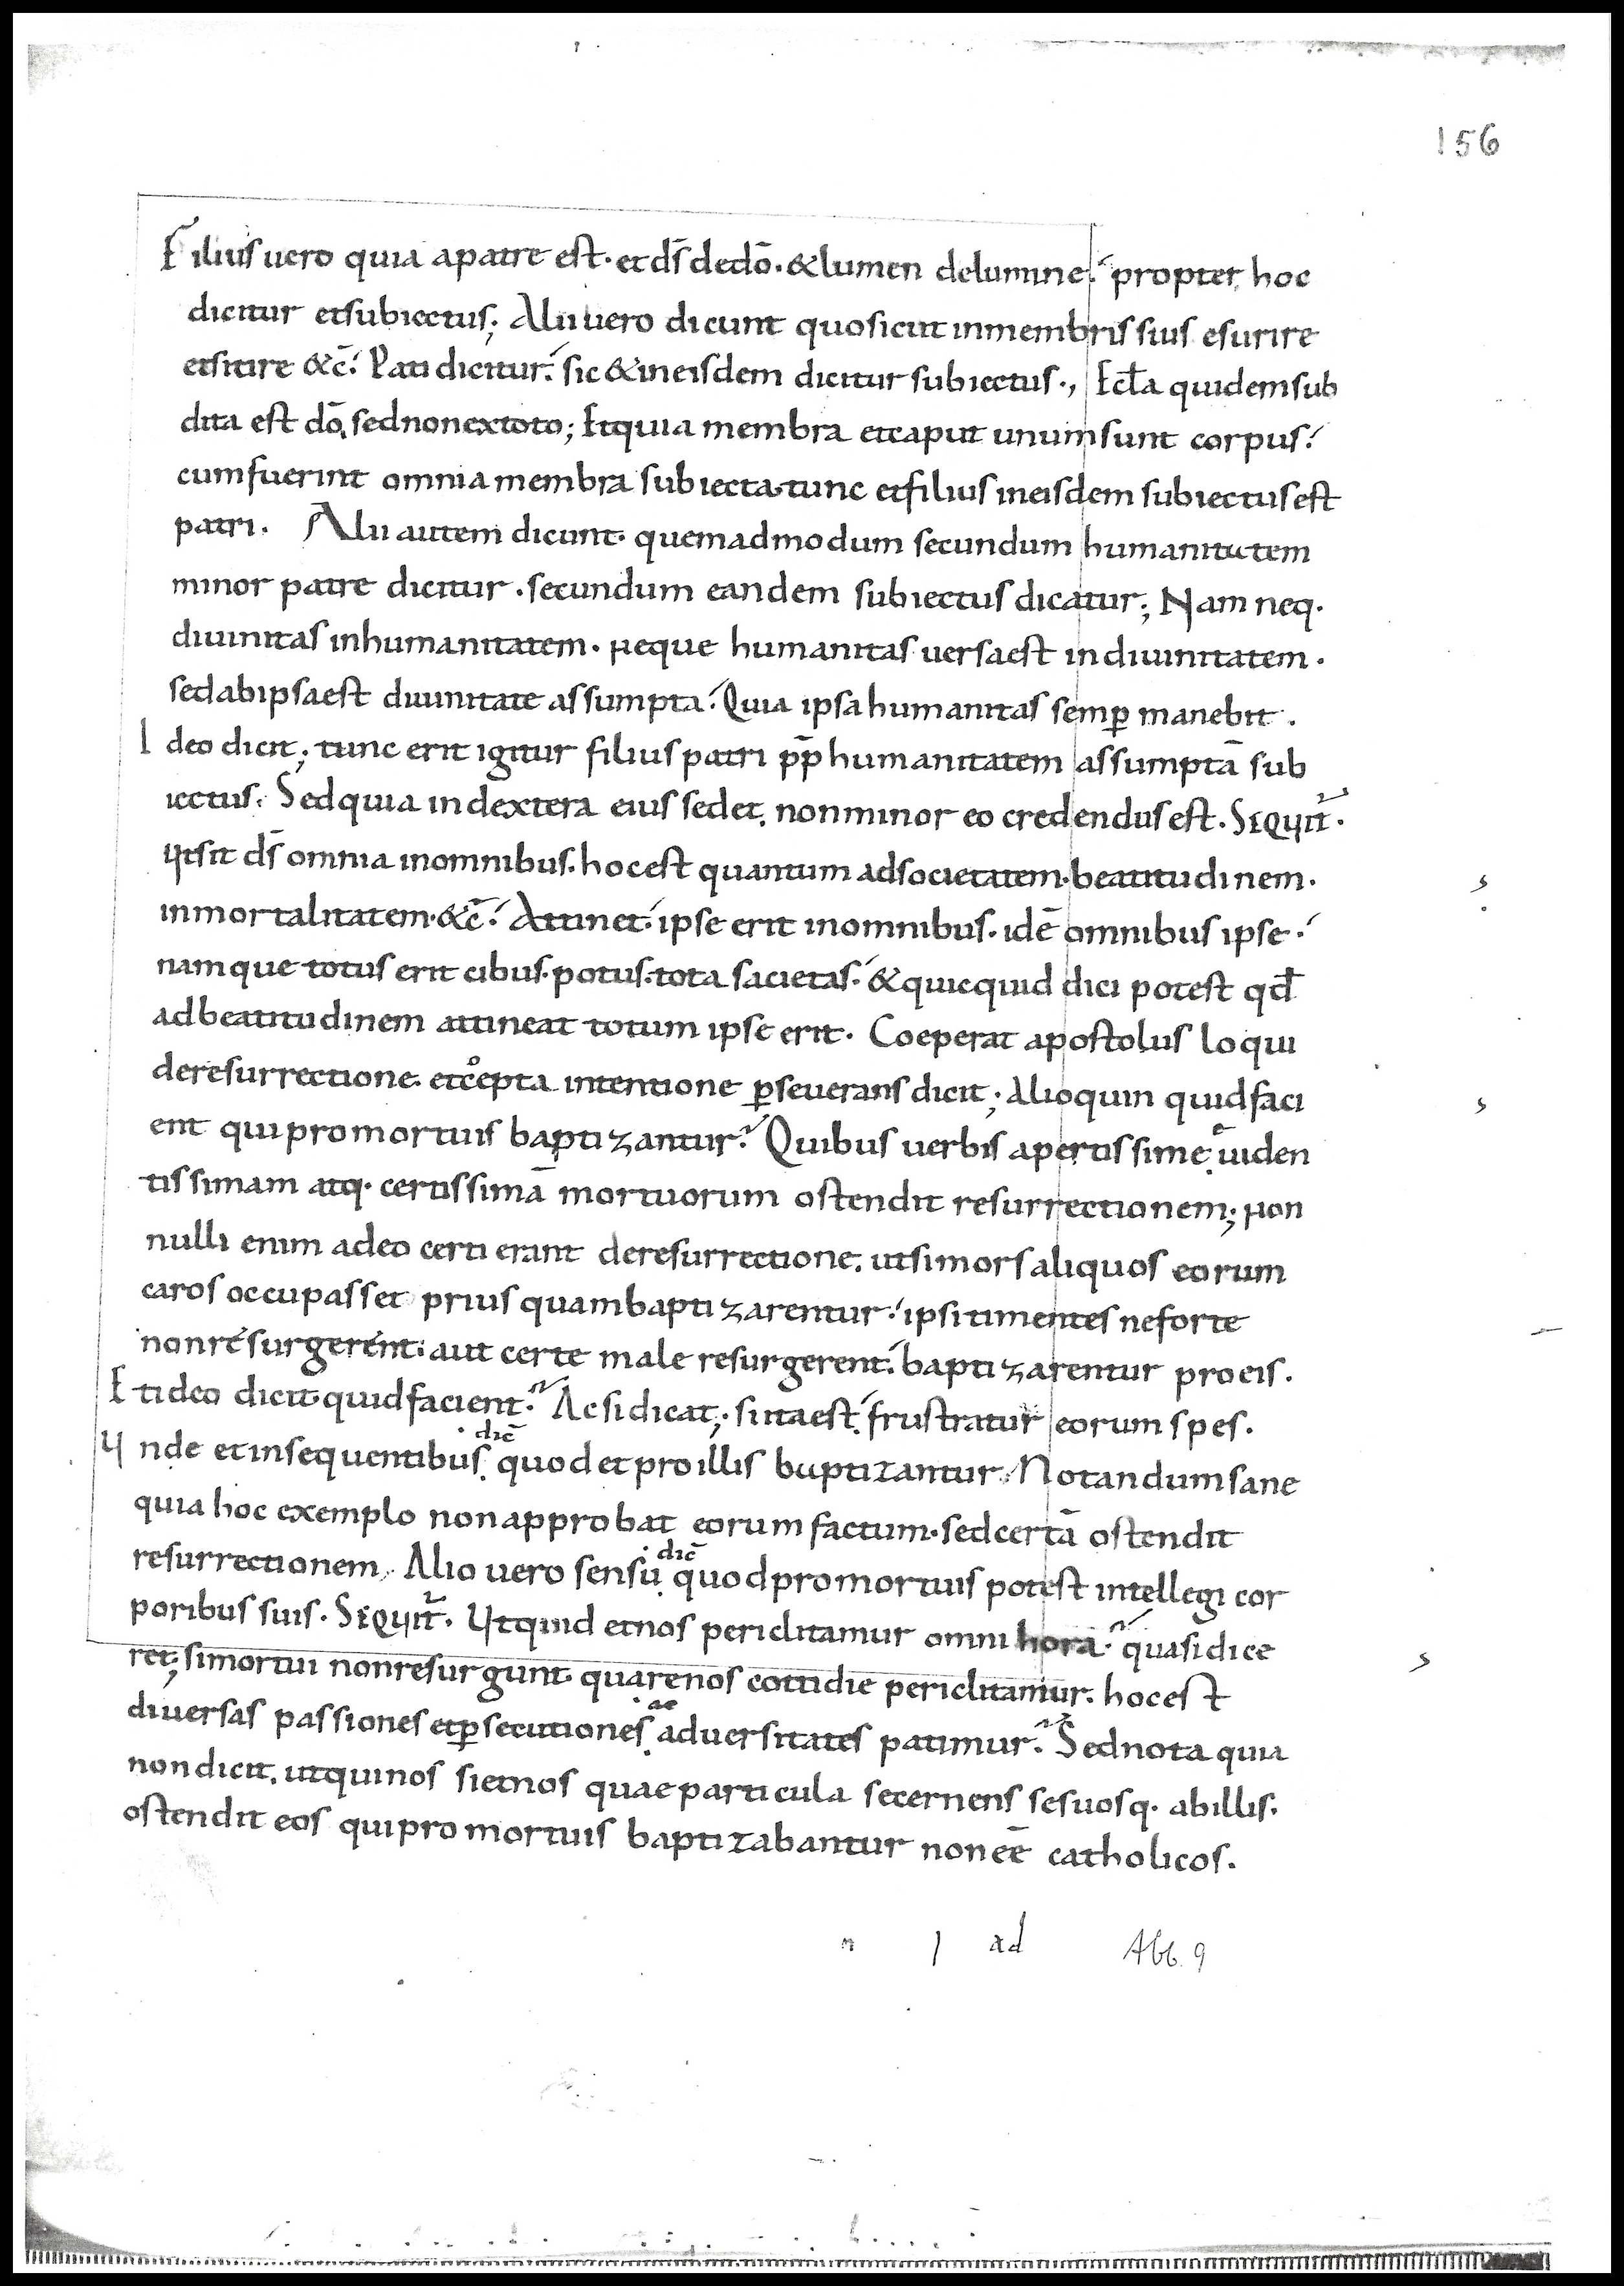 156
Filius uero quia apatre est· et dſ̄ dedō· &lumen delumine: propter hoc
dicitur etsubiectus; Alii uero dicunt quosicut inmembris suis esurire
etsitire &c̄: Pati dicitur: sic &ineisdem dicitur subiectus·, Eccl̄a quidem sub
dita est dō, sednonextoto; Etquia membra etcaput unum sunt corpus:
cumfuerint omnia membra subiecta· tunc etfilius ineisdem subiectusest
patri· Alii autem dicunt· quemadmodum secundum humanitatem
minor patre dicitur· secundum eandem subiectus dicatur; Nam neq·
diuinitas inhumanitatem· neque humanitas uersaest indiuinitatem·
sedabipsaest diuinitate assumpta: Quia ipsa humanitas semꝑ manebit·
Ideo dicit; tunc erit igitur filius patri pp̄ humanitatem assumptā sub
iectus· Sedquia indextera eius sedet· nonminor eo credendus est· Sequit̄·
Utsit dſ̄ omnia inomnibus· hocest quantum adsocietatem· beatitudinem·
inmortalitatem· &c̄: Attinet: ipse erit inomnibus· idē omnibus ipse:
namque totus erit cibus· potus· tota sacietas: &quicquid dici potest qd̄
adbeatitudinem attineat totum ipse erit· Coeperat apostolus loqui
deresurrectione· etcoepta intentione ꝑseuerans dicit; Alioquin quidfaci
ent qui promortuis baptizantur? Quibus uerbis apertissime euiden
tissimam atq· certissimā mortuorum ostendit resurrectionem; Non
nulli enim adeo certi erant deresurrectione· utsimors aliquos eorum
caros occupasset prius quambaptizarentur: ipsi timentes neforte
nonresurgerent: aut certe male resurgerent: baptizarentur pro eis·
Et ideo dicit· quidfacient? Acsidicat; sitaest: frustratur eorum spes·
Unde etinsequentibus dic̄ quod et pro illis baptizantur· Notandumsane
quia hoc exemplo nonapprobat eorum factum· sedcertā ostendit
resurrectionem· Alio uero sensu dic̄ quodpromortuis potest intellegi cor
poribus suis· Sequit̄· Utquid etnos periclitamur omni hora? quasidice
ret; simortui nonresurgunt· quarenos cottidie periclitamur· hocest
diuersas passiones etꝑsecutiones ac aduersitates patimur? Sednota quia
nondicit· utquinos sietnos quae particula secernens sesuosq· abillis·
ostendit eos quipro mortuis baptizabantur noneē catholicos·
ad Abb. 9